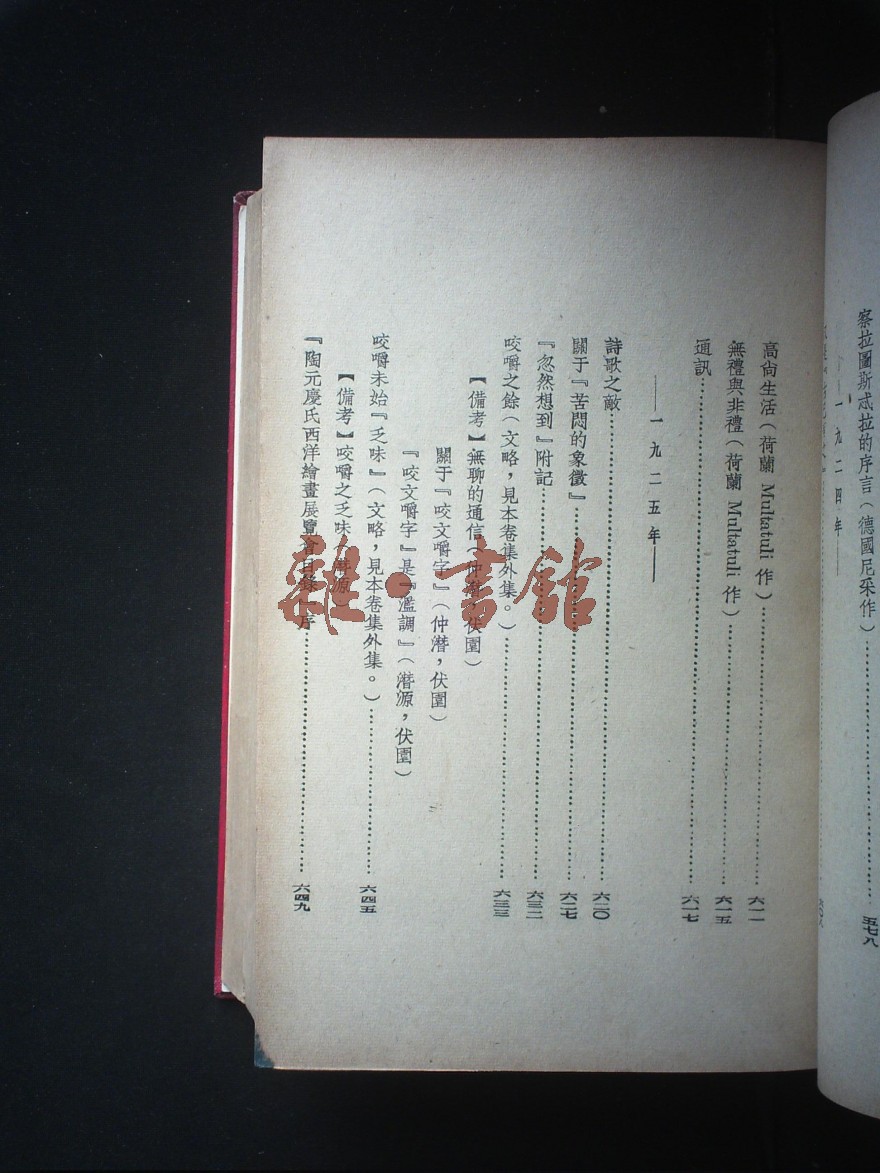 察拉圖斯忒拉的序言（德國尼采作）……五七八
——一九二四年——
高尙生活（荷蘭 Multatuli 作）……六一一
無禮與非禮（荷蘭 Multatuli 作）……六一五
通訊……六一七
——一九二五年——
詩歌之敵……六二〇
關于『苦悶的象徵』……六二七
『忽然想到』附記……六三二
咬嚼之餘（文略，見本卷集外集。）……六三三
【備考】無聊的通信（仲潛，伏園）
關于『咬文嚼字』（仲潛，伏園）
『咬文嚼字』是『濫調』（潛源，伏園）
咬嚼未始『乏味』（文略，見本卷集外集。）……六四五
【備考】咬嚼之乏味（潛源）
『陶元慶氏西洋繪畫展覽會目錄』序……六四九
雜·書館